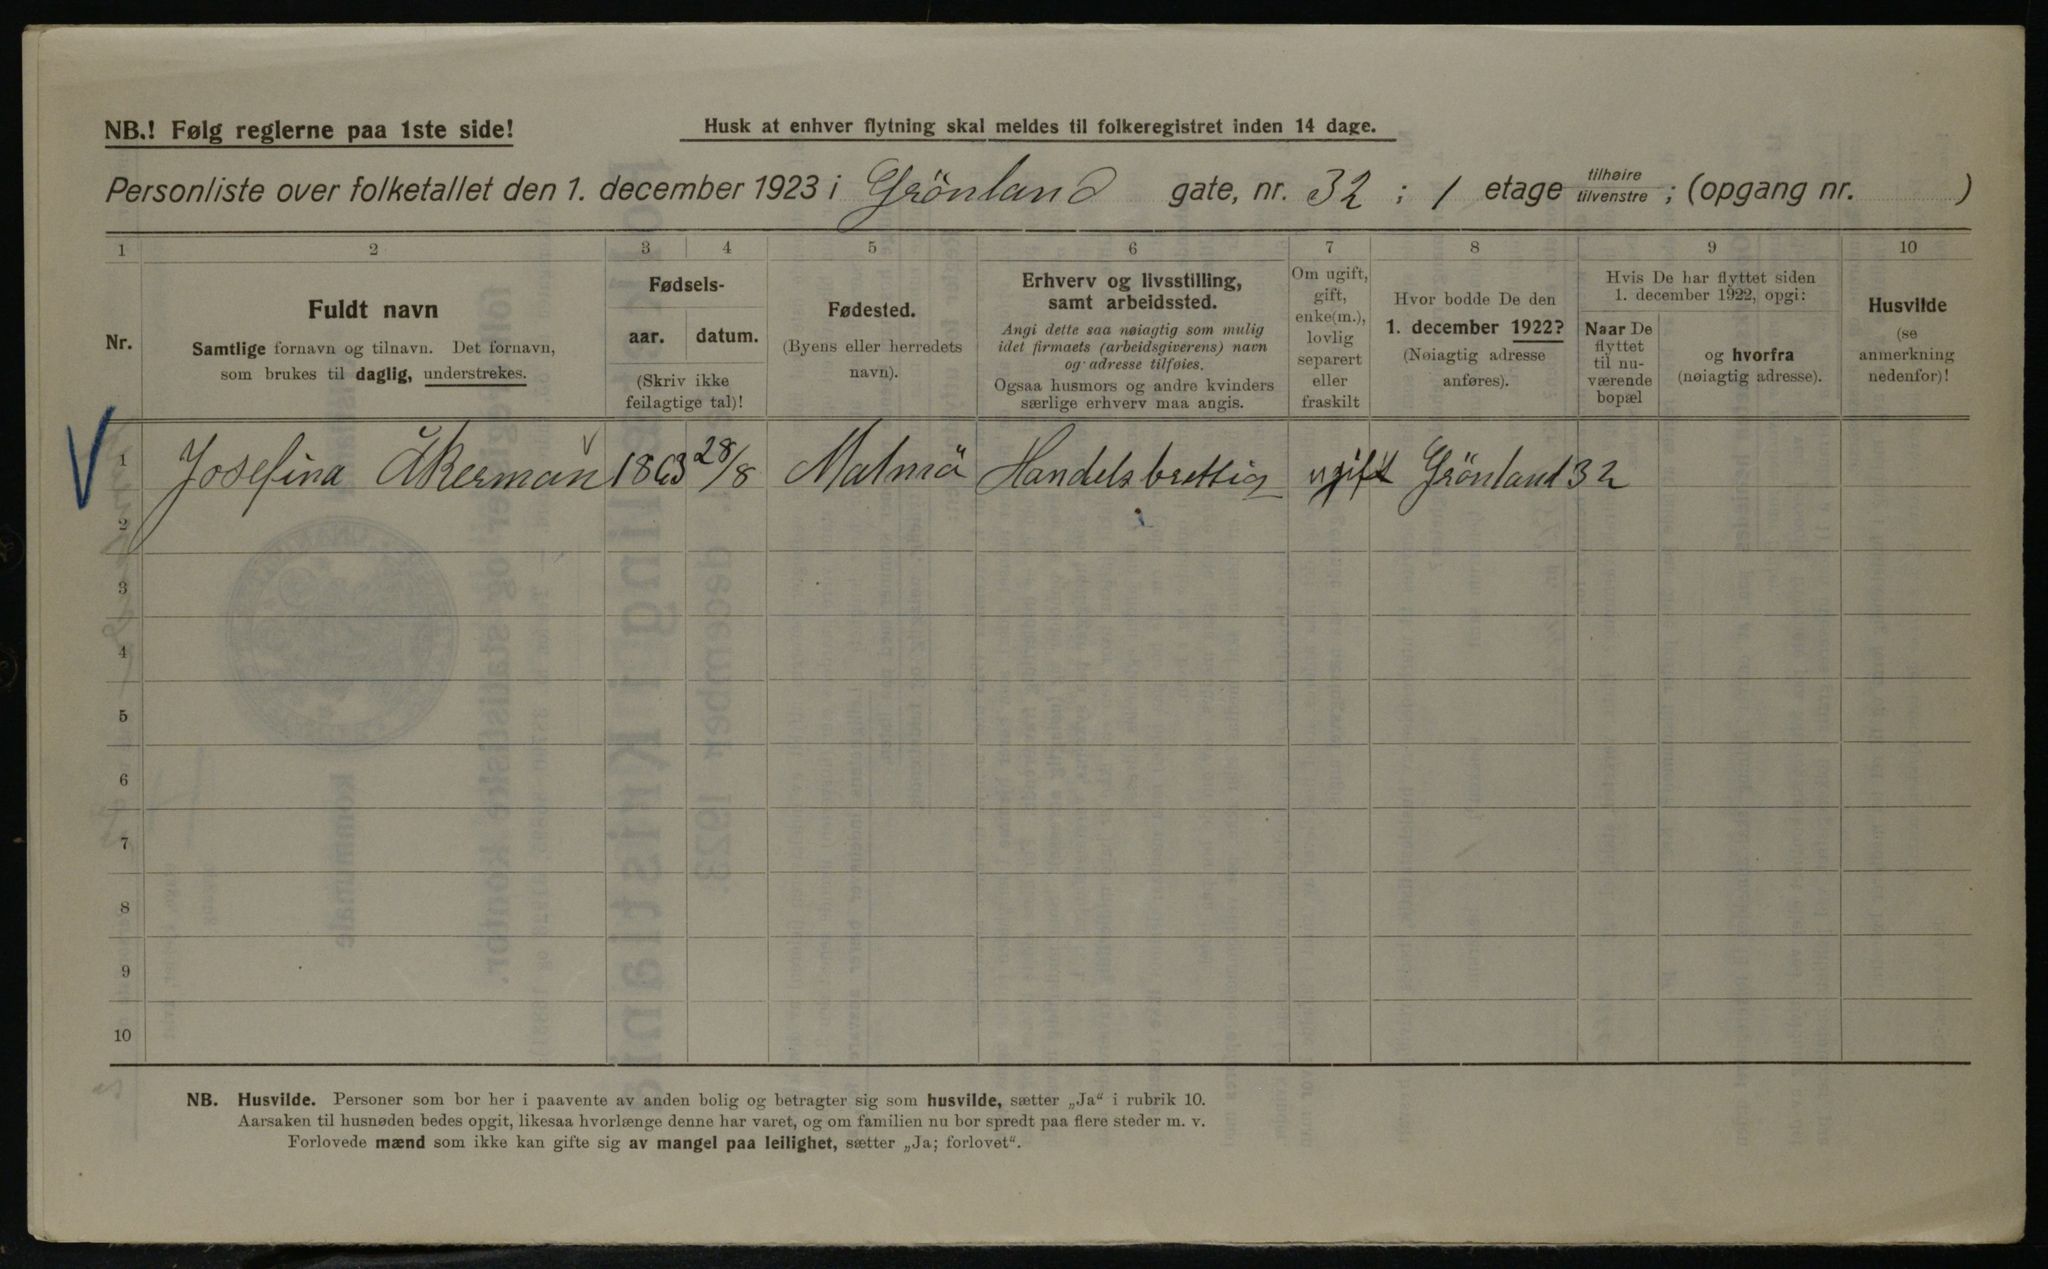 NB.! Følg reglerne paa 1ste side!
Husk at enhver flytning skal meldes til folkeregistret inden 14 dage.
Personliste over folketallet den 1. december 1923 i Grönland gate, nr. 32 ; 1 etage tilhøire tilvenstre ; (opgang nr. )
1 2 3 4 5 6 7 8 9 10
Nr.
Fuldt navn
Samtlige fornavn og tilnavn. Det fornavn,
som brukes til daglig, understrekes.
Fødsels-
aar. datum.
(Skriv ikke
feilagtige tal)!
Fødested.
(Byens eller herredets
navn).
Erhverv og livsstilling,
samt arbeidssted.
Angi dette saa nøiagtig som mulig
idet firmaets (arbeidsgiverens) navn
og adresse tilføies.
Ogsaa husmors og andre kvinders
særlige erhverv maa angis.
Om ugift,
gift,
enke(m.),
lovlig
separert
eller
fraskilt
Hvor bodde De den
1. december 1922?
(Nøiagtig adresse
anføres).
Hvis De har flyttet siden
1. december 1922, opgi:
Naar De
flyttet
til nu-
værende
bopæl
og hvorfra
(nøiagtig adresse).
Husvilde
(se
anmerkning
nedenfor)!
1 Josefina Åkerman 1863 28/8 Malmö Handelsbrettig ugift Grönland 32
2
3
4
5
6
7
8
9
10
NB. Husvilde. Personer som bor her i paavente av anden bolig og betragter sig som husvilde, sætter „Ja" i rubrik 10.
Aarsaken til husnøden bedes opgit, likesaa hvorlænge denne har varet, og om familien nu bor spredt paa flere steder m. v.
Forlovede mænd som ikke kan gifte sig av mangel paa leilighet, sætter „Ja; forlovet".